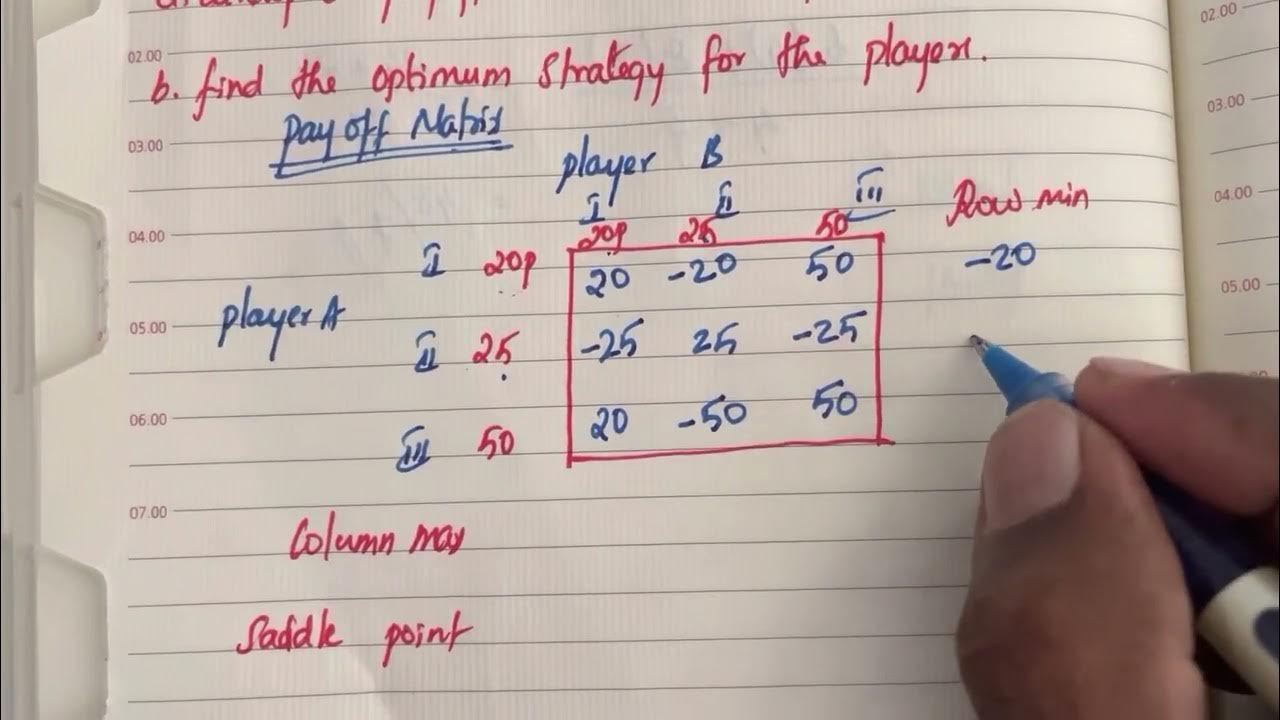 02.00
02.00
b. find the optimum strategy for the player.
03.00
03.00
Pay off Matrix
player B
04.00
I II III Row min
04.00
20p 25 50
I 20p 20 -20 50 -20
05.00
05.00
player A
II 25 -25 25 -25
06.00
III 50 20 -50 50
07.00
Column max
Saddle point